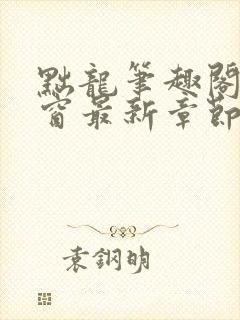 點龍筆趣閣
窗最新章節
袁鋼明